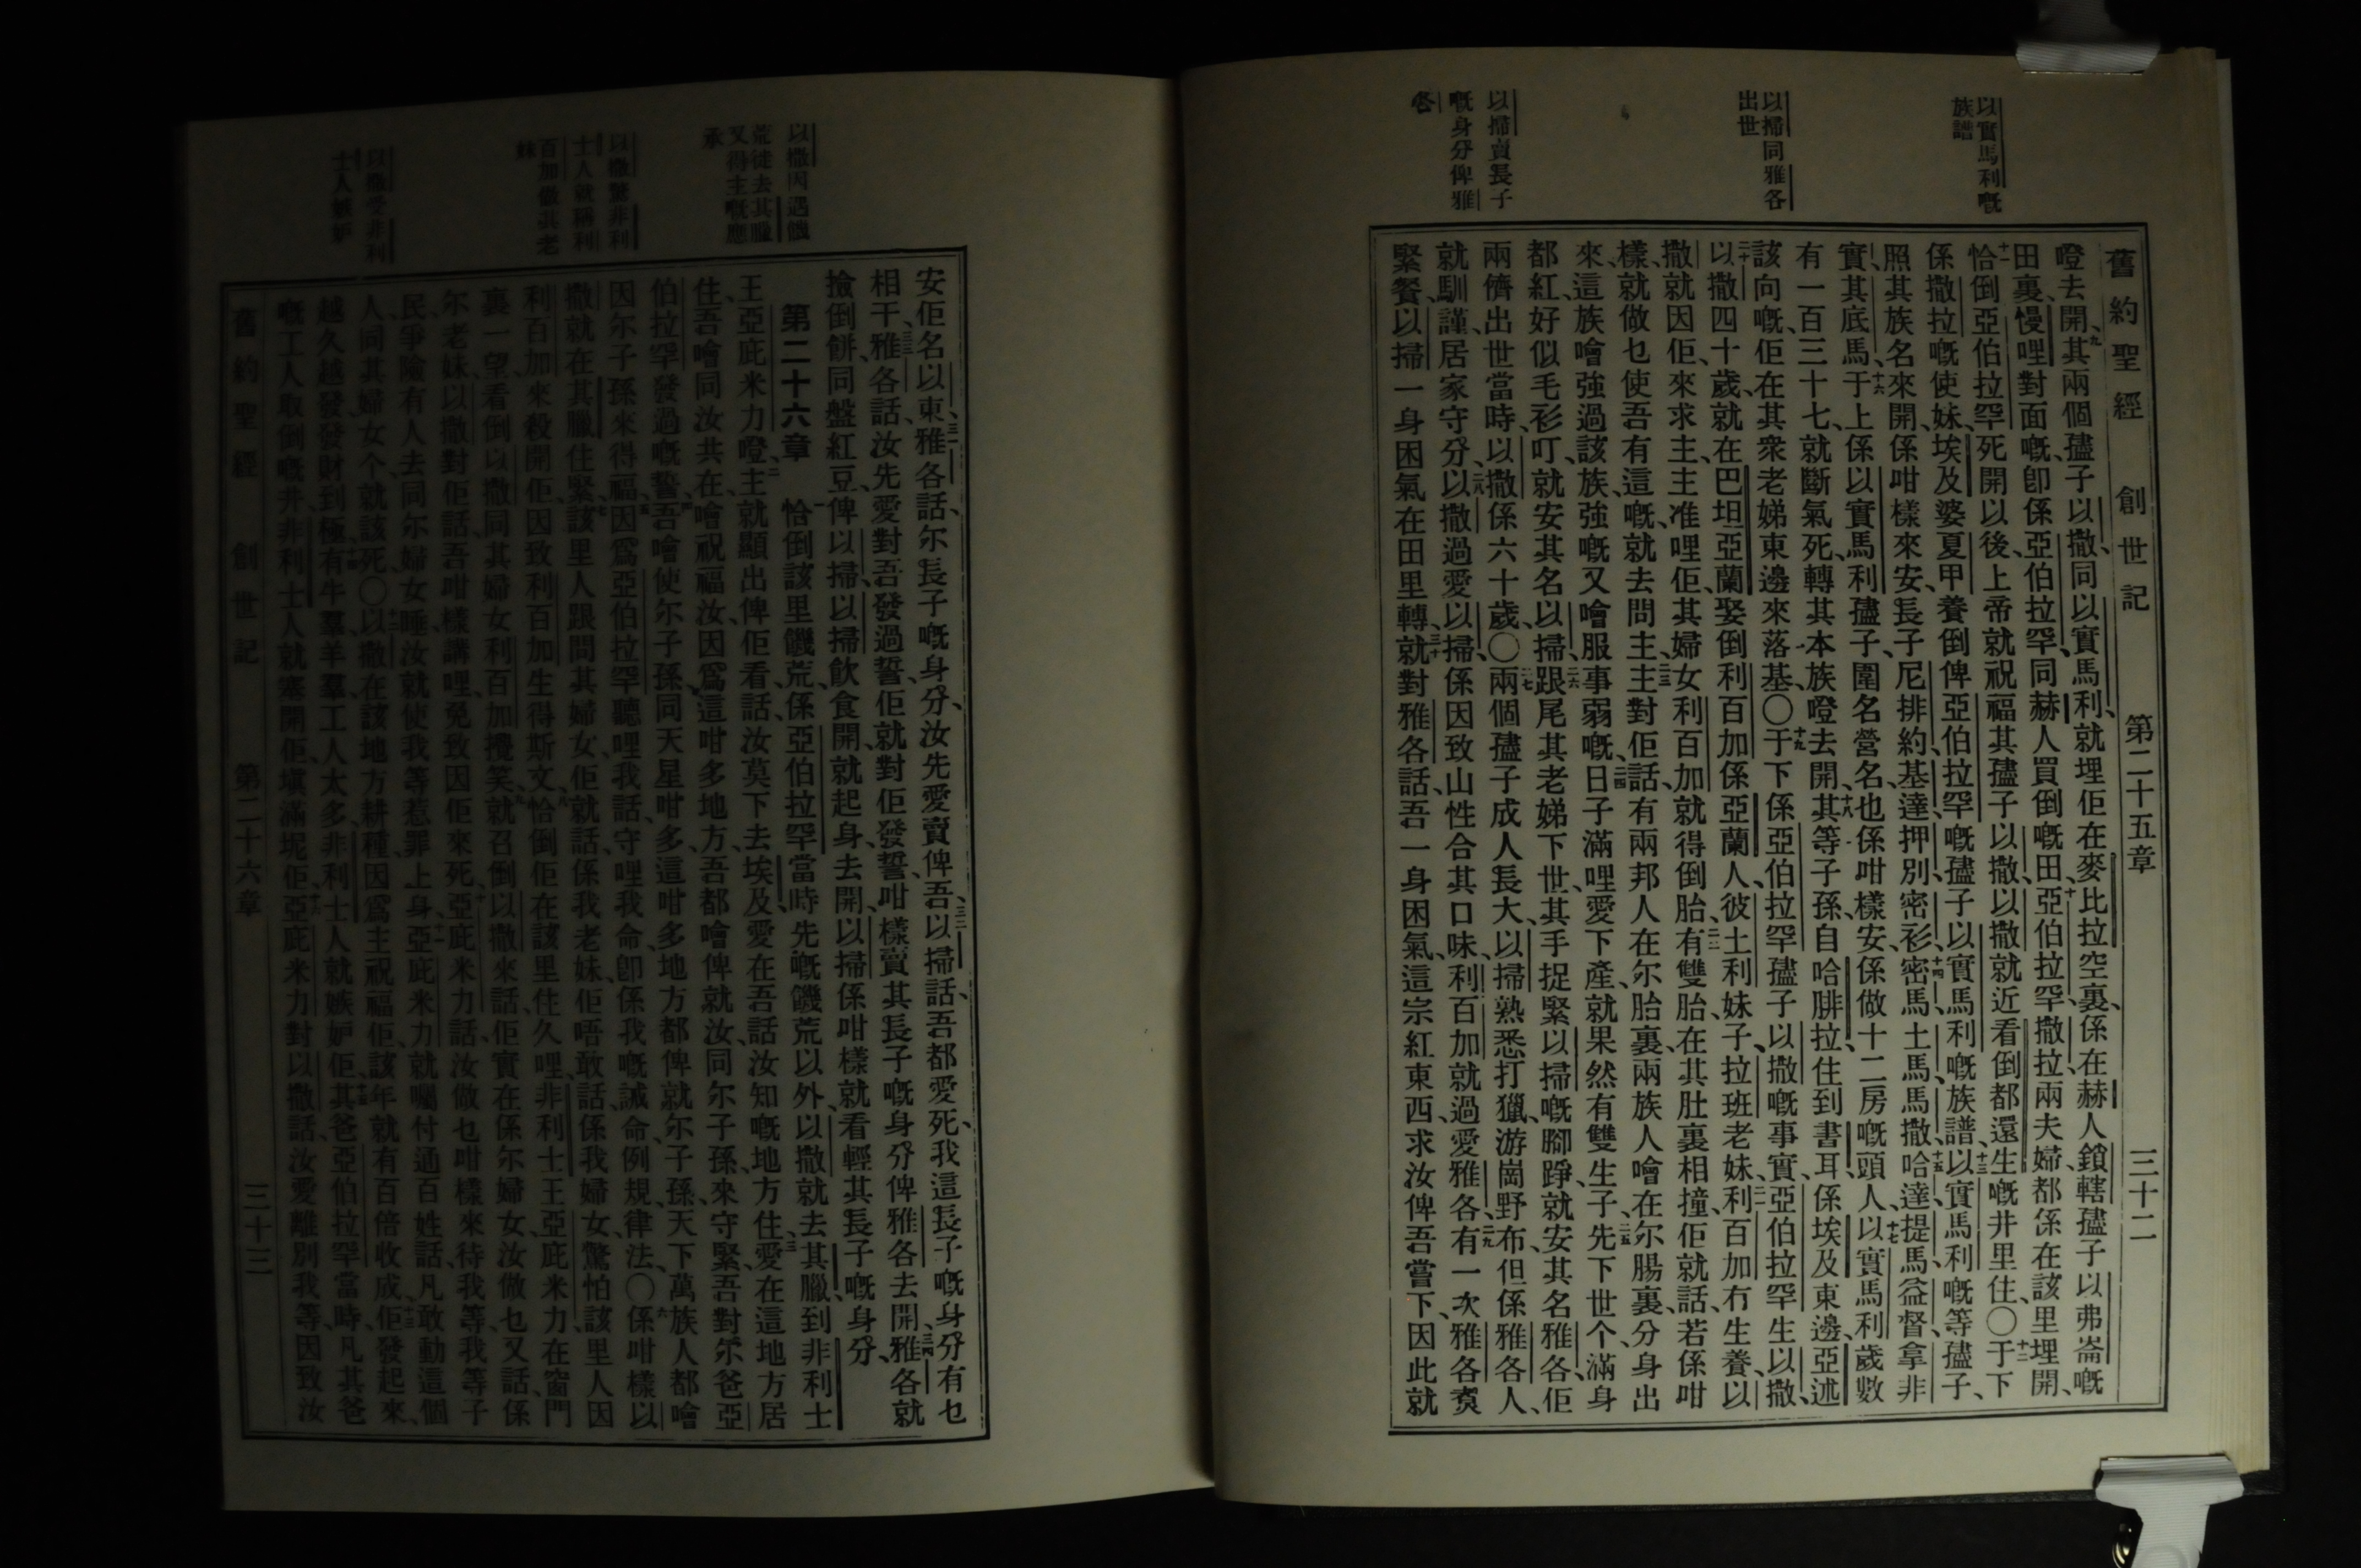 以實馬利嘅
族譜
以掃同雅各
出世
以掃賣長子
嘅身分俾雅
各
舊約聖經 創世記 第二十五章 三十二
噔去開、九其兩個孻子以撒、同以實馬利、就埋佢在麥比拉空裏、係在赫人鎖轄孻子以弗崙嘅
田裏、慢哩對面嘅、卽係亞伯拉罕、同赫人買倒嘅田、十亞伯拉罕、撒拉、兩夫婦、都係在該里埋開、
十一恰倒亞伯拉罕死開以後、上帝就祝福其孻子以撒、以撒就近看倒都還生嘅井里住、〇十二于下
係撒拉嘅使妹、埃及婆夏甲、養倒俾亞伯拉罕嘅孻子以實馬利嘅族譜、十三以實馬利嘅等孻子、
照其族名來開、係咁樣來安、長子尼排約、基達、押別、密衫、十四密馬、土馬、馬撒、十五哈達、提馬、益督、拿非
實、其底馬、十六于上係以實馬利孻子、圍名營名、也係咁樣安、係做十二房嘅頭人、十七以實馬利歲數
有一百三十七、就斷氣死、轉其本族噔去開、十八其等子孫、自哈腓拉住到書耳、係埃及東邊、亞述
該向嘅、佢在其衆老娣東邊來落基、〇十九于下係亞伯拉罕孻子以撒嘅事實、亞伯拉罕生以撒、
二十以撒四十歲、就在巴坦亞蘭娶倒利百加、係亞蘭人、彼土利妹子、拉班老妹、二一利百加冇生養、以
撒就因佢、來求主、主准哩佢、其婦女利百加就得倒胎、二二有雙胎、在其肚裏相撞、佢就話、若係咁
樣、就做乜使吾有這嘅、就去問主、二三主對佢話、有兩邦人在尔胎裏、兩族人噲在尔腸裏、分身出
來、這族噲強過該族、強嘅又噲服事弱嘅、二四日子滿哩愛下產、就果然有雙生子、二五先下世个、滿身
都紅、好似毛衫叮、就安其名以掃、二六跟尾其老娣下世、其手捉緊以掃嘅腳踭、就安其名雅各、佢
兩儕出世當時、以撒係六十歲、〇二七兩個孻子成人長大、以掃熟悉打獵、游崗野布、但係雅各人、
就馴謹、居家守分、二八以撒過愛以掃、係因致山性合其口味、利百加就過愛雅各、二九有一次雅各煑
緊餐、以掃一身困氣在田里轉、三十就對雅各話、吾一身困氣、這宗紅東西、求汝俾吾嘗下、因此就
以撒因遇饑
荒徒去其臘
又得主嘅應
承
以撒驚非利
士人就稱利
百加做其老
妹
以撒受非利
士人嫉妒
安佢名以東、三一雅各話、尔長子嘅身分、汝先愛賣俾吾、三二以掃話、吾都愛死、我這長子嘅身分有乜
相干、三三雅各話、汝先愛對吾發過誓、佢就對佢發誓、咁樣賣其長子嘅身分俾雅各去開、三四雅各就
撿倒餅、同盤紅豆、俾以掃、以掃飲食開、就起身去開、以掃係咁樣就看輕其長子嘅身分、
第二十六章 一恰倒該里饑荒、係亞伯拉罕當時先嘅饑荒以外、以撒就去其臘、到非利士
王亞庇米力噔、二主就顯出俾佢看話、汝莫下去埃及、愛在吾話汝知嘅地方住、三愛在這地方居
住、吾噲同汝共在、噲祝福汝、因爲這咁多地方、吾都噲俾就汝、同尔子孫、來守緊、吾對尔爸亞
伯拉罕發過嘅誓、四吾噲使尔子孫、同天星咁多、這咁多地方都俾就尔子孫、天下萬族人都噲
因尔子孫來得福、五因爲亞伯拉罕聽哩我話、守哩我命、卽係我嘅誡命、例規、律法、〇六係咁樣以
撒就在其臘住緊、七該里人跟問其婦女、佢就話、係我老妹、佢唔敢話、係我婦女、驚怕該里人因
利百加來殺開佢、因致利百加生得斯文、八恰倒佢在該里住久哩、非利士王亞庇米力在窗門
裏一望、看倒以撒同其婦女利百加攪笑、九就召倒以撒來話、佢實在係尔婦女、汝做乜又話、係
尔老妹、以撒對佢話、吾咁樣講哩、免致因佢來死、十亞庇米力話、汝做乜咁樣來待我等、我等子
民、爭險有人去同尔婦女睡、汝就使我等惹罪上身、十一亞庇米力就囑付通百姓話、凡敢動這個
人、同其婦女个、就該死、〇十二以撒在該地方耕種、因爲主祝福佢、該年就有百倍收成、十三佢發起來、
越久越發、發財到極、十四有牛羣、羊羣、工人太多、非利士人就嫉妒佢、十五其爸亞伯拉罕當時、凡其爸
嘅工人取倒嘅井、非利士人就塞開佢、塡滿坭佢、十六亞庇米力對以撒話、汝愛離別我等、因致汝
舊約聖經 創世記 第二十六章 三十三